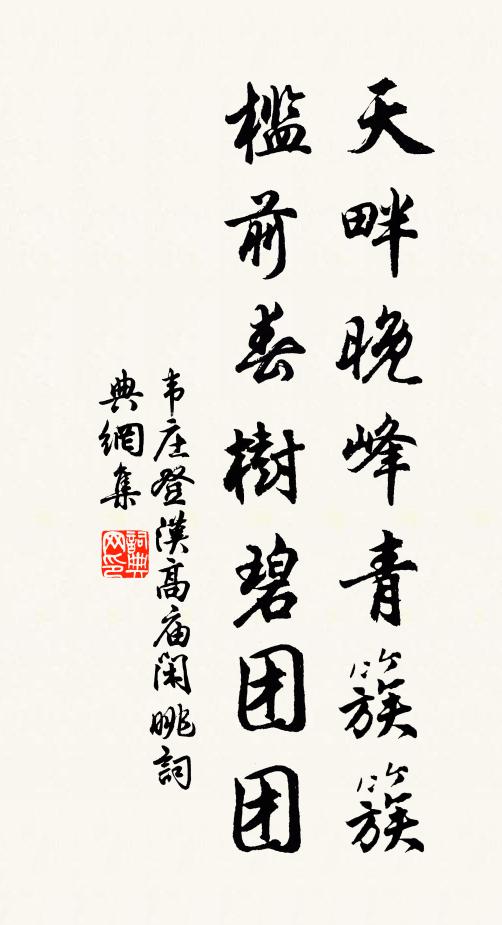 天畔晚峰青簇簇
槛前春樹碧团团
韦庄登漢高庙闲眺詞
典網集
詞典
网印